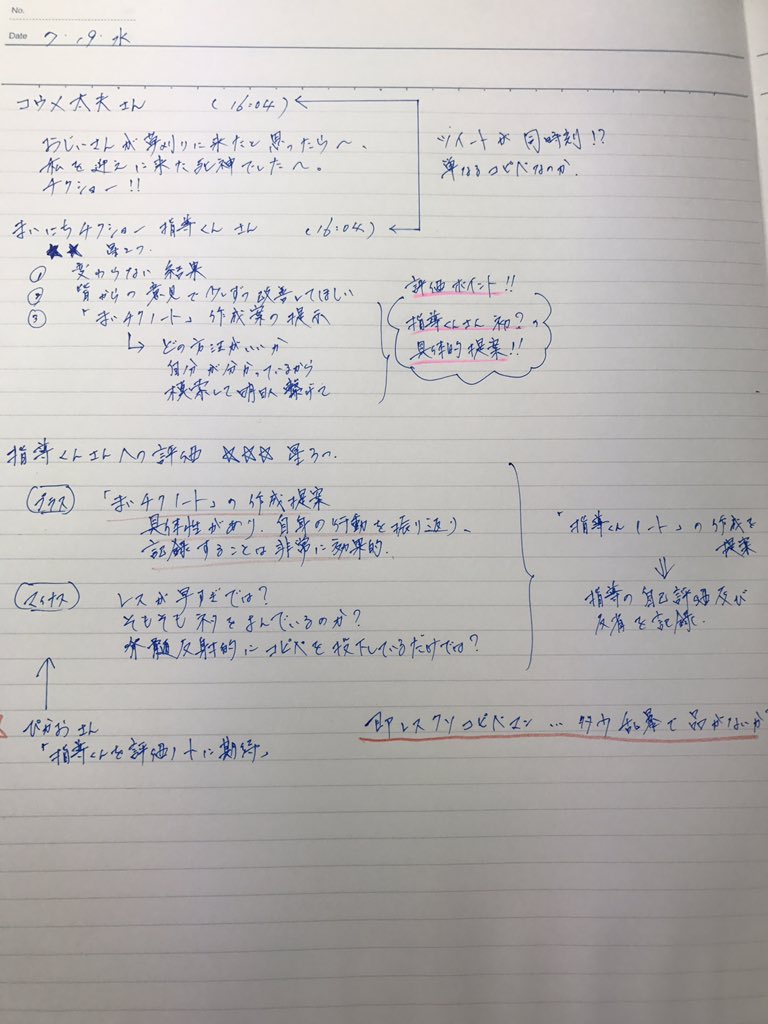 No.
Date 7・19・水
コウメ太夫さん (16:04)
おじぃさんが草刈りに来たと思ったら〜、
私を迎えに来た死神でした〜。
チクショー!!
ツイートが同時刻!?
単なるコピペなのか.
まいにちチクショー指導くんさん (16:04)
★★ 星2つ.
① 変わらない結果
② 皆からの意見で少しずつ改善してほしい
③ 「まいチクノート」作成案の提示
↳ どの方法がいいか
自分が分かっているから
模索して明日へ繋げて
評価ポイント!!
指導くんさん初?の
具体的提案!!
指導くんさんへの評価 ☆☆☆ 星3つ.
プラス 「まいチクノート」の作成提案
具体性があり、自身の行動を振り返り、
記録することは非常に効果的.
マイナス レスが早すぎでは?
そもそもネタをよんでいるのか?
脊髄反射的にコピペを投下しているだけでは?
「指導くんノート」の作成を
提案
⇓
指導の自己評価及び
反省を記録.
ぴかおさん
「指導くんを評価ノートに期待」
即レスクソコピペマン…多少乱暴で品がないか?